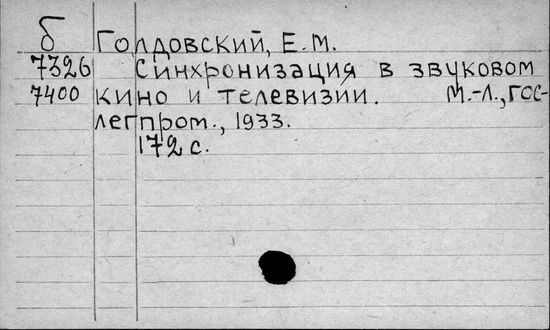 б Голдовский, Е.М.
7326 Синхронизация в звуковом
7400 кино и телевизии. М.-Л., Гос-
легпром., 1933.
172 с.